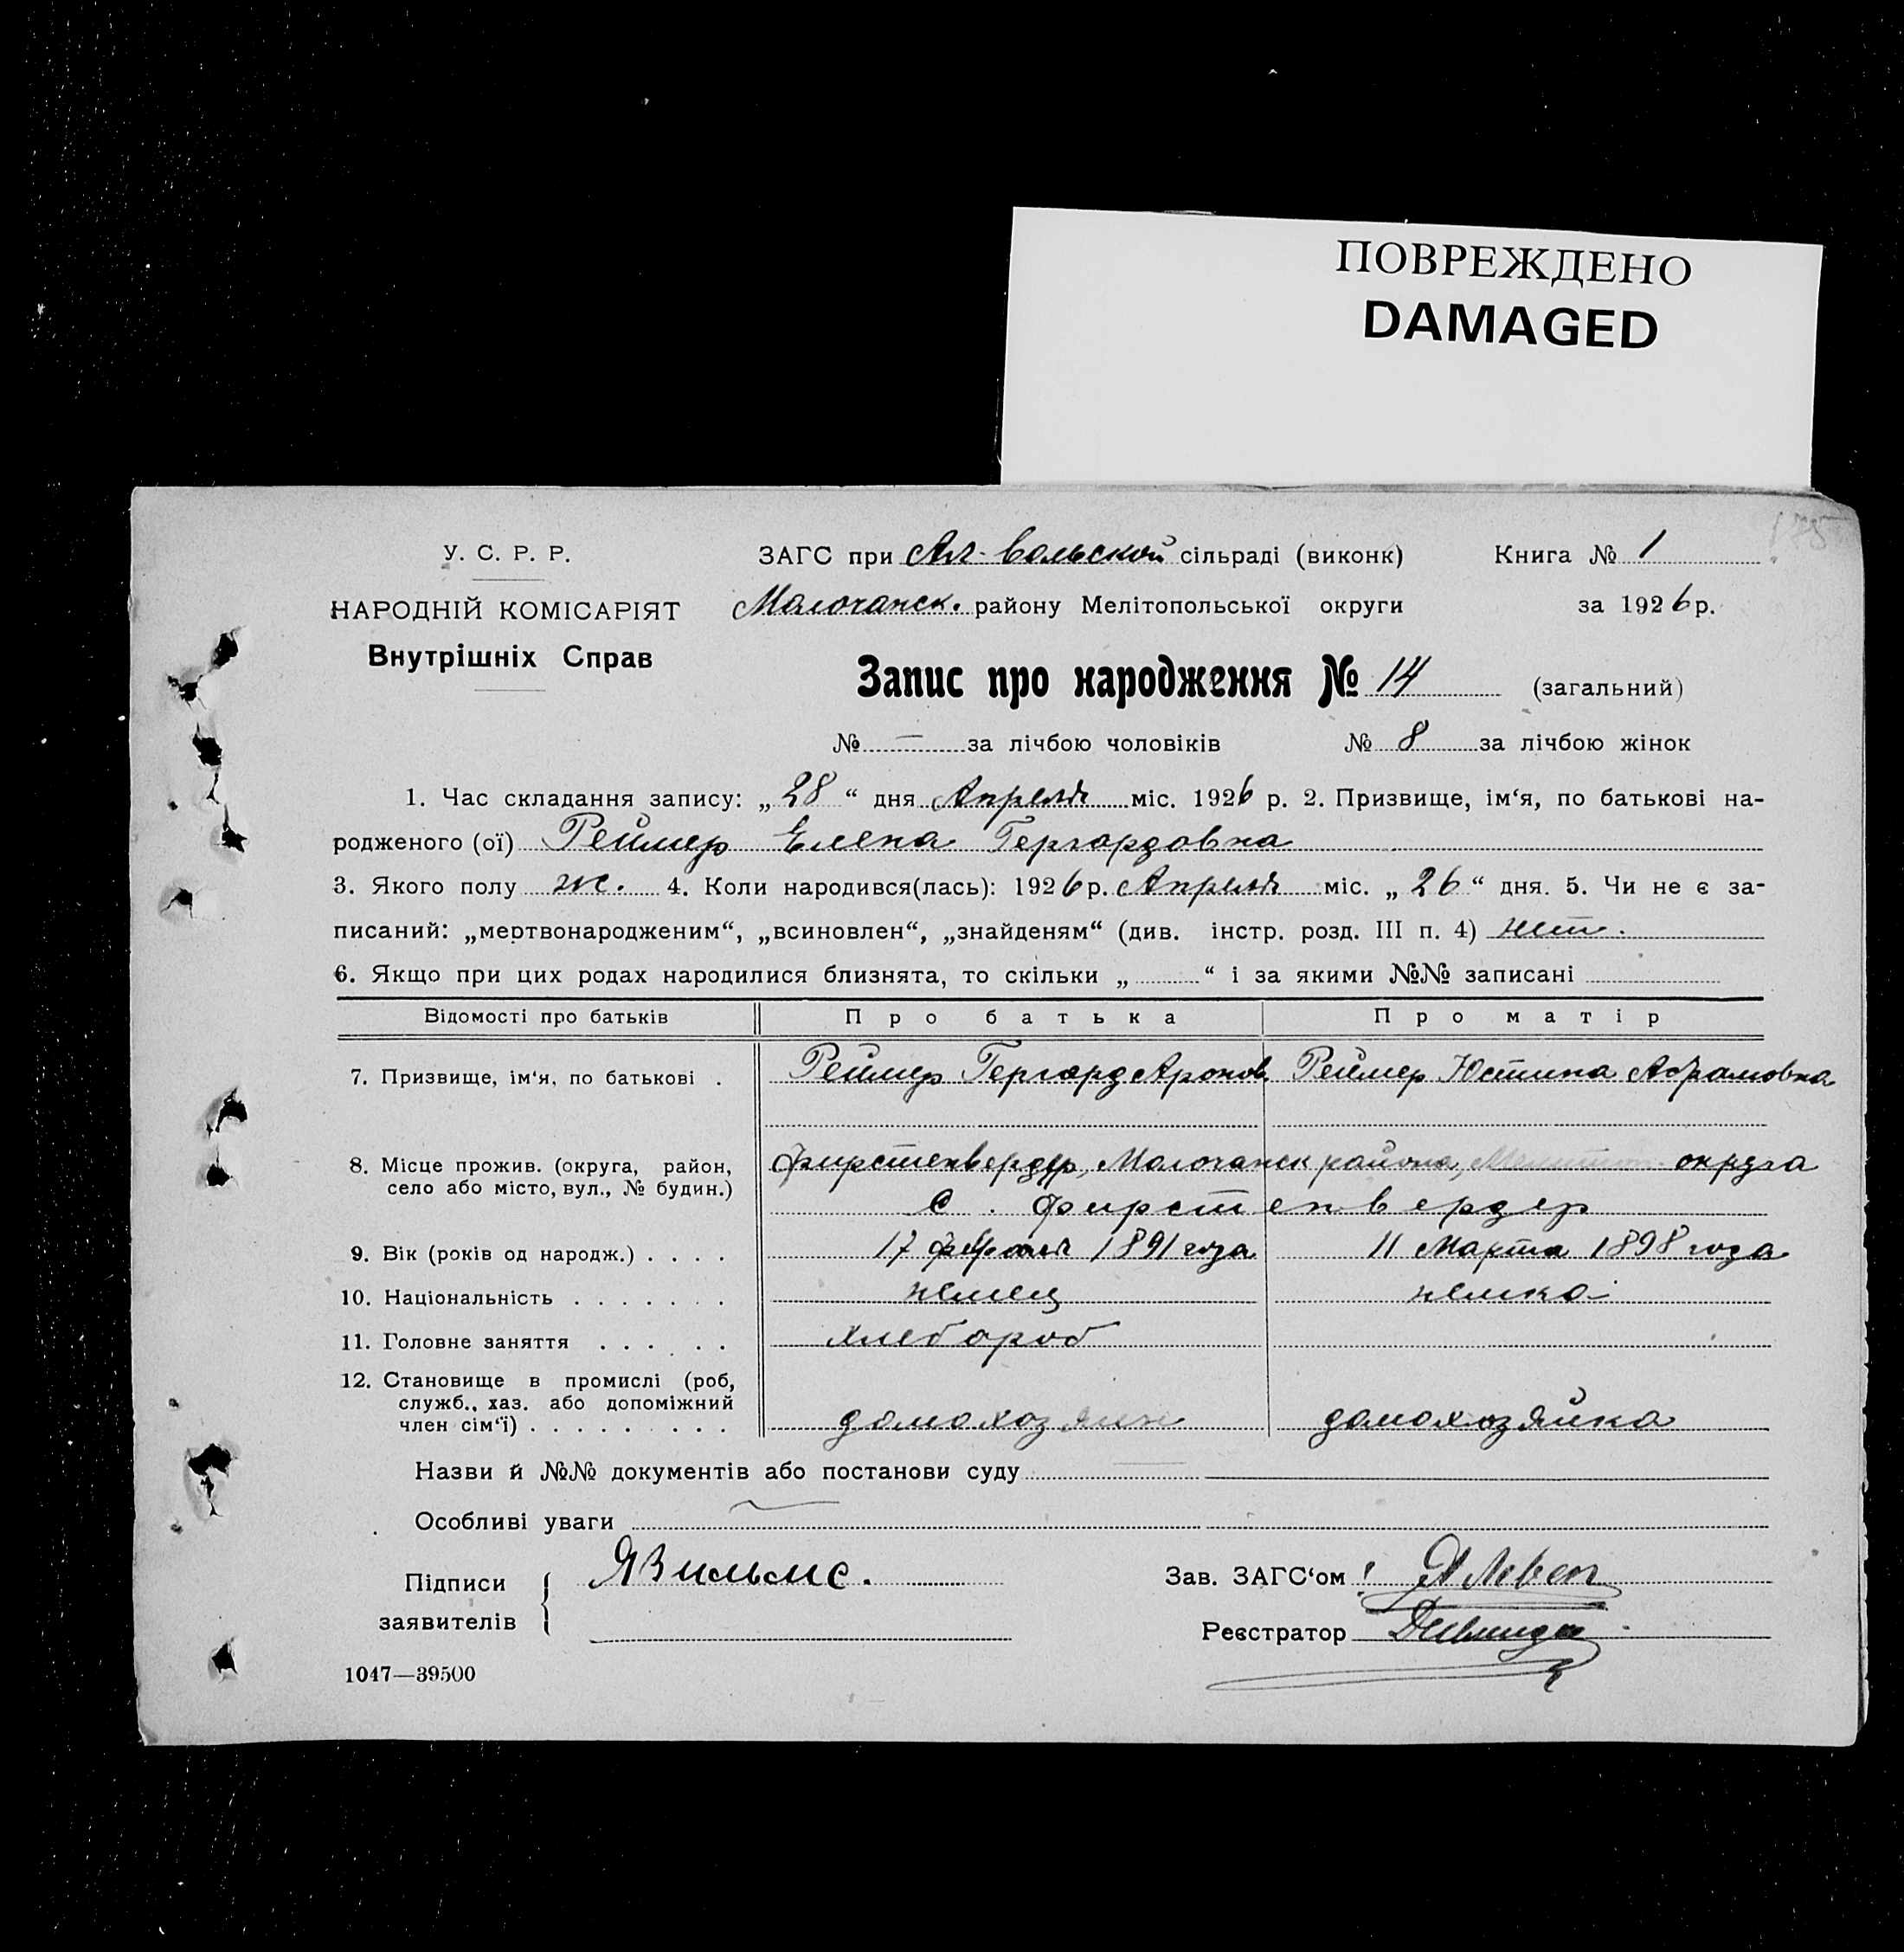 ПОВРЕЖДЕНО
DAMAGED
У. С. Р. Р.
НАРОДНІЙ КОМІСАРІЯТ
Внутрішніх Справ
ЗАГС при Ал-вольской сільраді (виконк)
Молочанск. району Мелітопольської округи
Книга № 1
за 1926 р.
Запис про народження № 14 (загальний)
№ — за лічбою чоловіків № 8 за лічбою жінок
1. Час складання запису: „28“ дня Апреля міс. 1926 р. 2. Призвище, ім‘я, по батькові на-
родженого (ої) Реймер Елена Гергардовна
3. Якого полу ж. 4. Коли народився(лась): 1926 р. Апреля міс. „26“ дня. 5. Чи не є за-
писаний: „мертвонародженим“, „всиновлен“, „знайденям“ (див. інстр. розд. III п. 4) нет.
6. Якщо при цих родах народилися близнята, то скільки „ “ і за якими №№ записані
Відомості про батьків Про батька Про матір
7. Призвище, ім‘я, по батькові . Реймер Гергард Аронов. Реймер Юстина Абрамовна
8. Місце прожив. (округа, район, село або місто, вул., № будин.) Фирстенвердер, Молочанск района, Мелитоп. округа
с. Фирстенвердер
9. Вік (років од народж.) . . . . 17 февраля 1891 года 11 Марта 1898 года
10. Національність . . . . . . . немец немка
11. Головне заняття . . . . . . хлебороб
12. Становище в промислі (роб,
служб., хаз. або допоміжний
член сім‘ї) . . . . . . . . . домохозяин домохозяйка
Назви й №№ документів або постанови суду —
Особливі уваги
Підписи
заявителів
ЯВильмс.
Зав. ЗАГС‘ом
Реєстратор
1047—39500